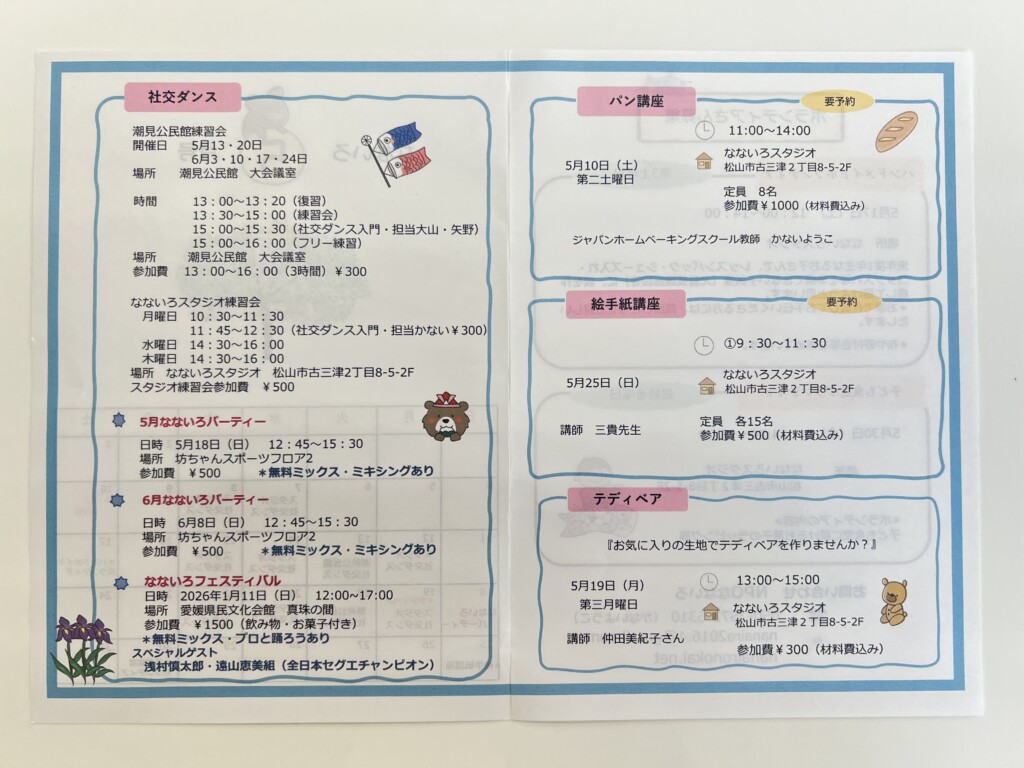 社交ダンス
潮見公民館練習会
開催日　5月13・20日
6月3・10・17・24日
場所　潮見公民館　大会議室
時間　13：00～13：20（復習）
13：30～15：00（練習会）
15：00～15：30（社交ダンス入門・担当大山・矢野）
15：00～16：00（フリー練習）
場所　潮見公民館　大会議室
参加費　13：00～16：00（3時間）￥300
なないろスタジオ練習会
月曜日　10：30～11：30
11：45～12：30（社交ダンス入門・担当かない￥300）
水曜日　14：30～16：00
木曜日　14：30～16：00
場所　なないろスタジオ　松山市古三津2丁目8-5-2F
スタジオ練習会参加費　￥500
5月なないろパーティー
日時　5月18日（日）　12：45～15：30
場所　坊ちゃんスポーツフロア2
参加費　￥500　＊無料ミックス・ミキシングあり
6月なないろパーティー
日時　6月8日（日）　12：45～15：30
場所　坊ちゃんスポーツフロア2
参加費　￥500　＊無料ミックス・ミキシングあり
なないろフェスティバル
日時　2026年1月11日（日）　12:00～17:00
場所　愛媛県民文化会館　真珠の間
参加費　￥1500（飲み物・お菓子付き）
＊無料ミックス・プロと踊ろうあり
スペシャルゲスト
浅村慎太郎・遠山恵美組（全日本セグエチャンピオン）
パン講座
要予約
11:00～14:00
5月10日（土）
第二土曜日
なないろスタジオ
松山市古三津２丁目8-5-2F
定員　8名
参加費￥1000（材料費込み）
ジャパンホームベーキングスクール教師　かないようこ
絵手紙講座
要予約
①9：30～11：30
5月25日（日）
なないろスタジオ
松山市古三津２丁目8-5-2F
講師　三貴先生
定員　各15名
参加費￥500（材料費込み）
テディベア
『お気に入りの生地でテディベアを作りませんか？』
5月19日（月）
第三月曜日
13:00～15:00
なないろスタジオ
松山市古三津２丁目8-5-2F
講師　仲田美紀子さん
参加費￥300（材料費込み）